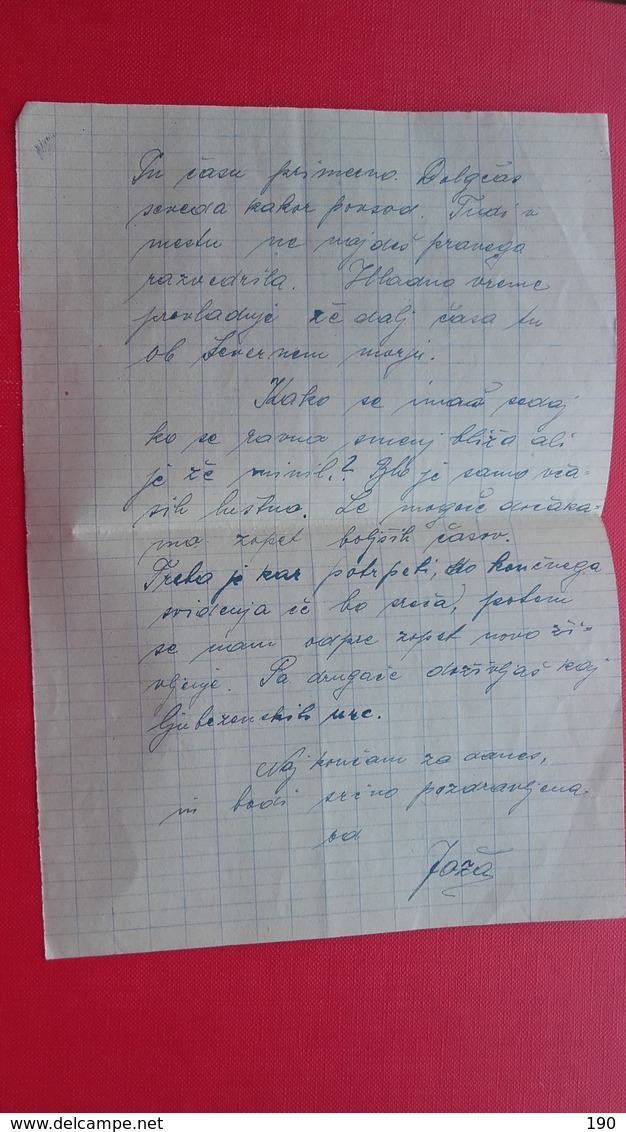 Tu času primerno. Dolgčas
seveda kakor povsod. Tudi v
mestu ne najdeš pravega
razvedrila. Hladno vreme
prevladuje že dalj časa tu
ob Severnem morju.
Kako se imaš sedaj
ko se ravna smenj bliža ali
je že minil.? Blo je samo vča-
sih luštno. Le mogoče dočaka-
mo zopet boljših časov.
Treba je kar potrpeti, do končnega
svidenja če bo sreča, potem
se nam odpre zopet novo ži-
vljenje. Pa drugače doživljaš kaj
ljubezenskih urc.
Naj končam za danes,
in bodi srčno pozdravljena.
od
Joža
delcampe.net
190